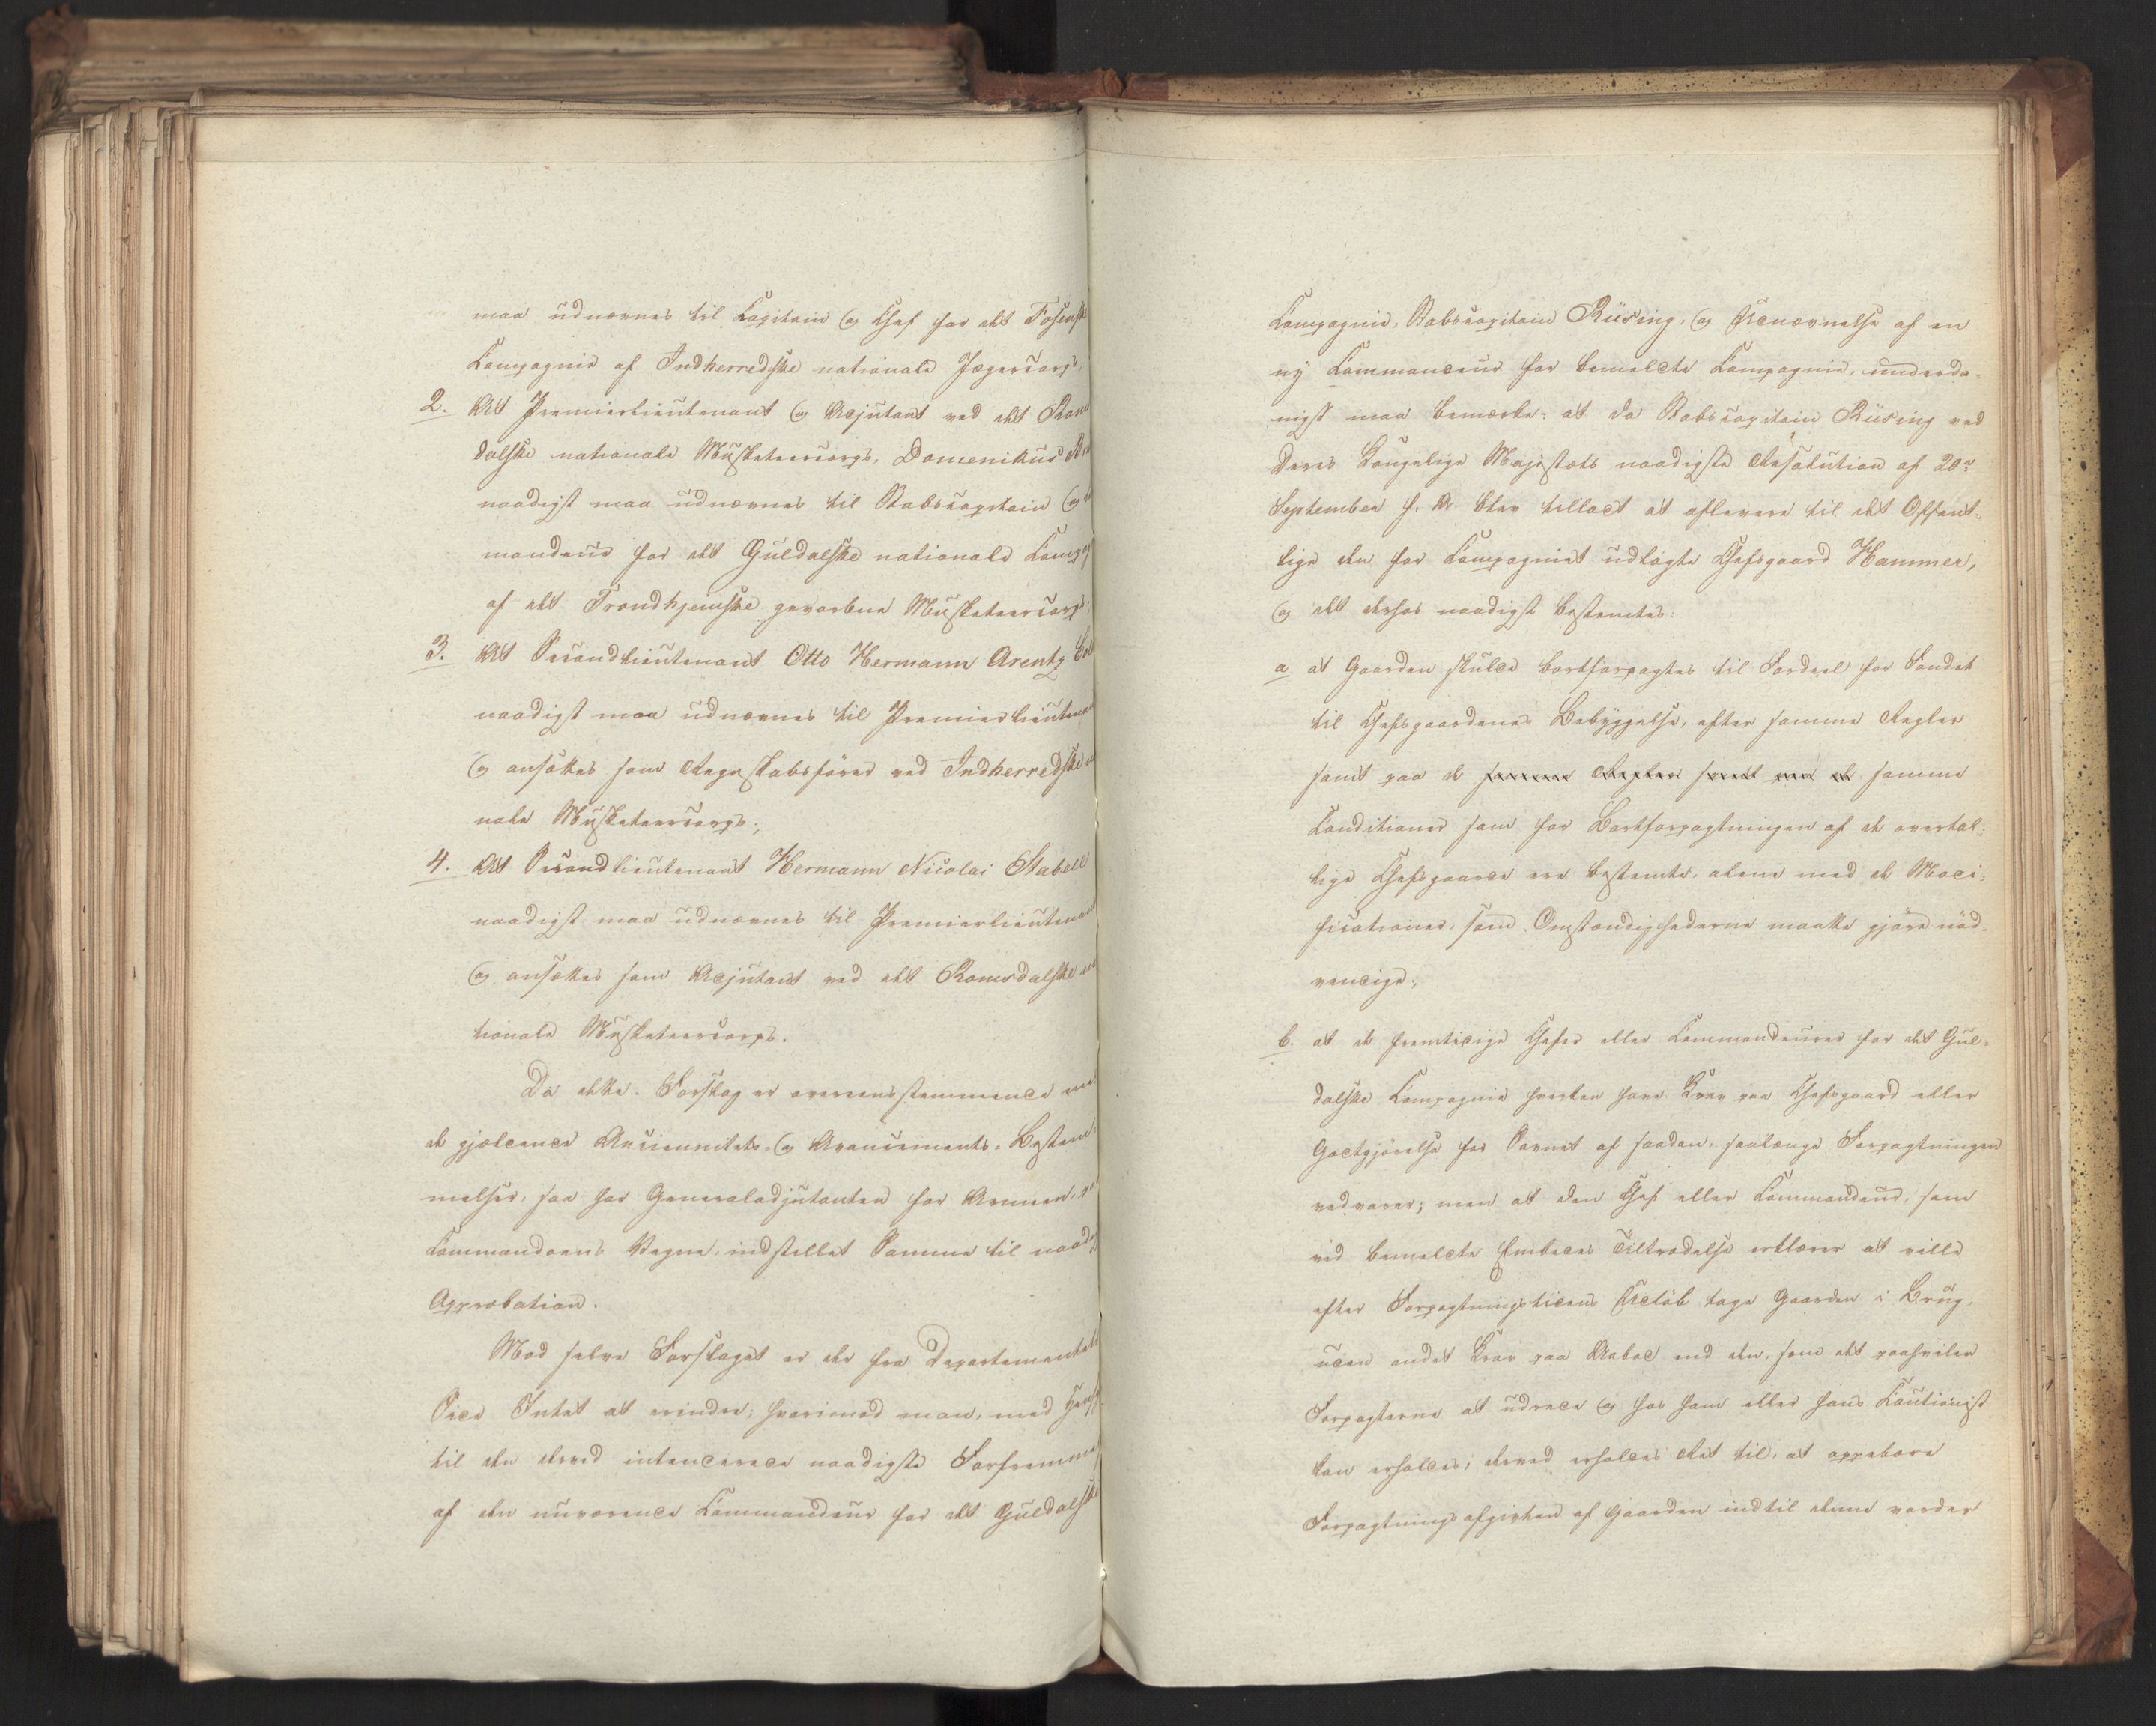 maa udnævnes til Kapitain og Chef for det Fosensk
Kompagnie af Indherredske nationale Jægercorps;
2. At Premierlieutenant og Adjutant ved det Roms
dalske nationale Musketeercorps, Domenikus
naadigst maa udnævnes til Stabscapitain og
mandeur for det Guldalske nationale Kompag
af det Trondhjemske gevorbne Musketeercorps;
3. At Secondlieutenant Otto Hermann Arentz
naadigst maa udnævnes til Premierlieutenant
og ansættes som Regnskabsförer ved Indherredske
nale Musketeercorps;
4. At Secondlieutenant Hermann Nicolai Stabell
naadigst maa udnævnes til Premierlieutenant
og ansættes som Adjutant ved det Romsdalske na
tionale Musketeercorps.
Da dette Forslag er overeensstemmende med
de gjældende Anciennitets- og Avancements-Bestem-
melser, saa har Generaladjutanten for Armeen, paa
Commandoens Vegne, indstillet Samme til naadigst
Approbation.
Mod selve Forslaget er der fra Departementets
Side Intet at erindre; hvorimod man, med Hensyn
til den derved intenderede naadigste Forfremmelse
af den nuværende Commandeur for det Guldalske
Kompagnie, Stabscapitain Rüsing, og Udnævnelse af en
ny Commandeur for bemeldte Kompagnie, underda-
nigst maa bemærke: at da Stabscapitain Rüsing ved
Deres Kongelige Majestæts naadigste Resolution af 20de
September f. A. blev tilladt at aflevere til det Offent-
lige den for Kompagniet udlagte Chefsgaard Hammer,
og det derhos naadigst bestemtes:
a at Gaarden skulde bortforpagtes til Fordeel for Fondet
til Chefsgaardenes Bebyggelse, efter samme Regler
samt paa de samme Regler samt paa de samme
Conditioner som for Bortforpagtningen af de overtal-
lige Chefsgaarde ere bestemte, alene med de Modi-
ficationer, som Omstændighederne maatte gjöre nöd-
vendige;
b. at de fremtidige Chefer eller Commandeurer for det Gul-
dalske Kompagnie hverken have Krav paa Chefsgaard eller
Godtgjörelse for Savnet af saadan, saalænge Forpagtningen
vedvarer; men at den Chef eller Commandeur, som
ved bemeldte Embedes Tiltrædelse erklærer at ville
efter Forpagtningstidens Udlöb tage Gaarden i Brug,
uden andet Krav paa Aabod end den, som det paahviler
Forpagterne at udrede og hos ham eller hans Cautionist
kan erholdes; derved erholder Ret til, at oppebære
Forpagtningsafgivten af Gaarden indtil denne vorder